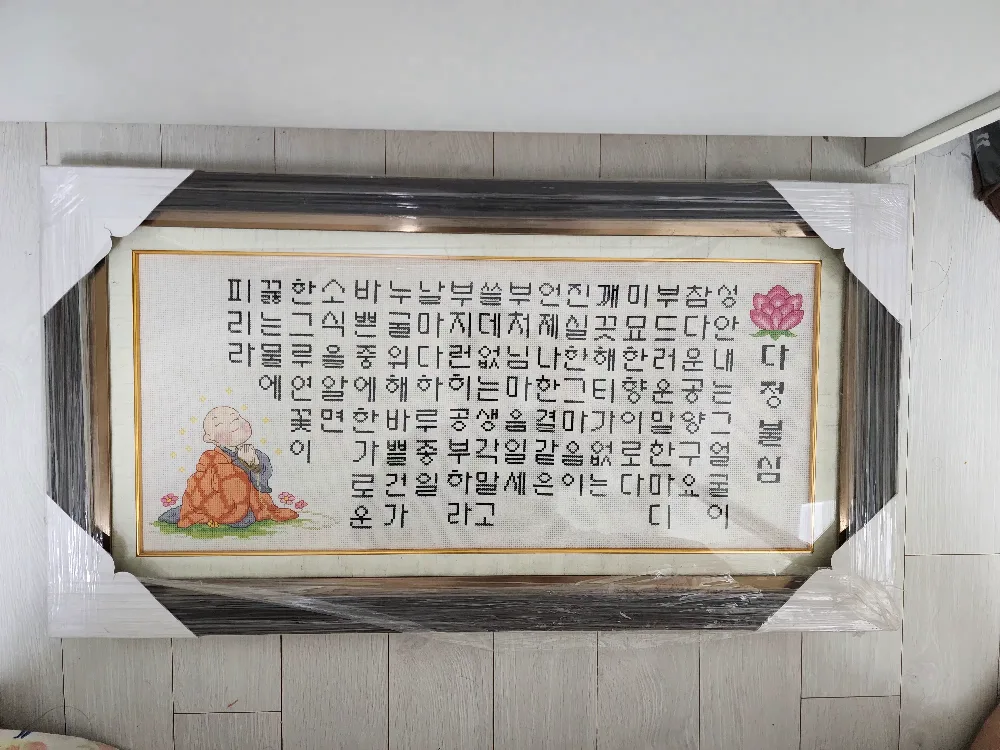 다정불심
성안내는그얼굴이
참다운공양구요
부드러운말한마디
미묘한향이로다
깨끗해티가없는
진실한그마음이
언제나한결같은
부처님마음일세
쓸데없는생각말고
부지런히공부하라
날마다하루종일
누굴위해바쁠건가
바쁜중에한가로운
소식을알면
한그루연꽃이
끓는물에
피리라